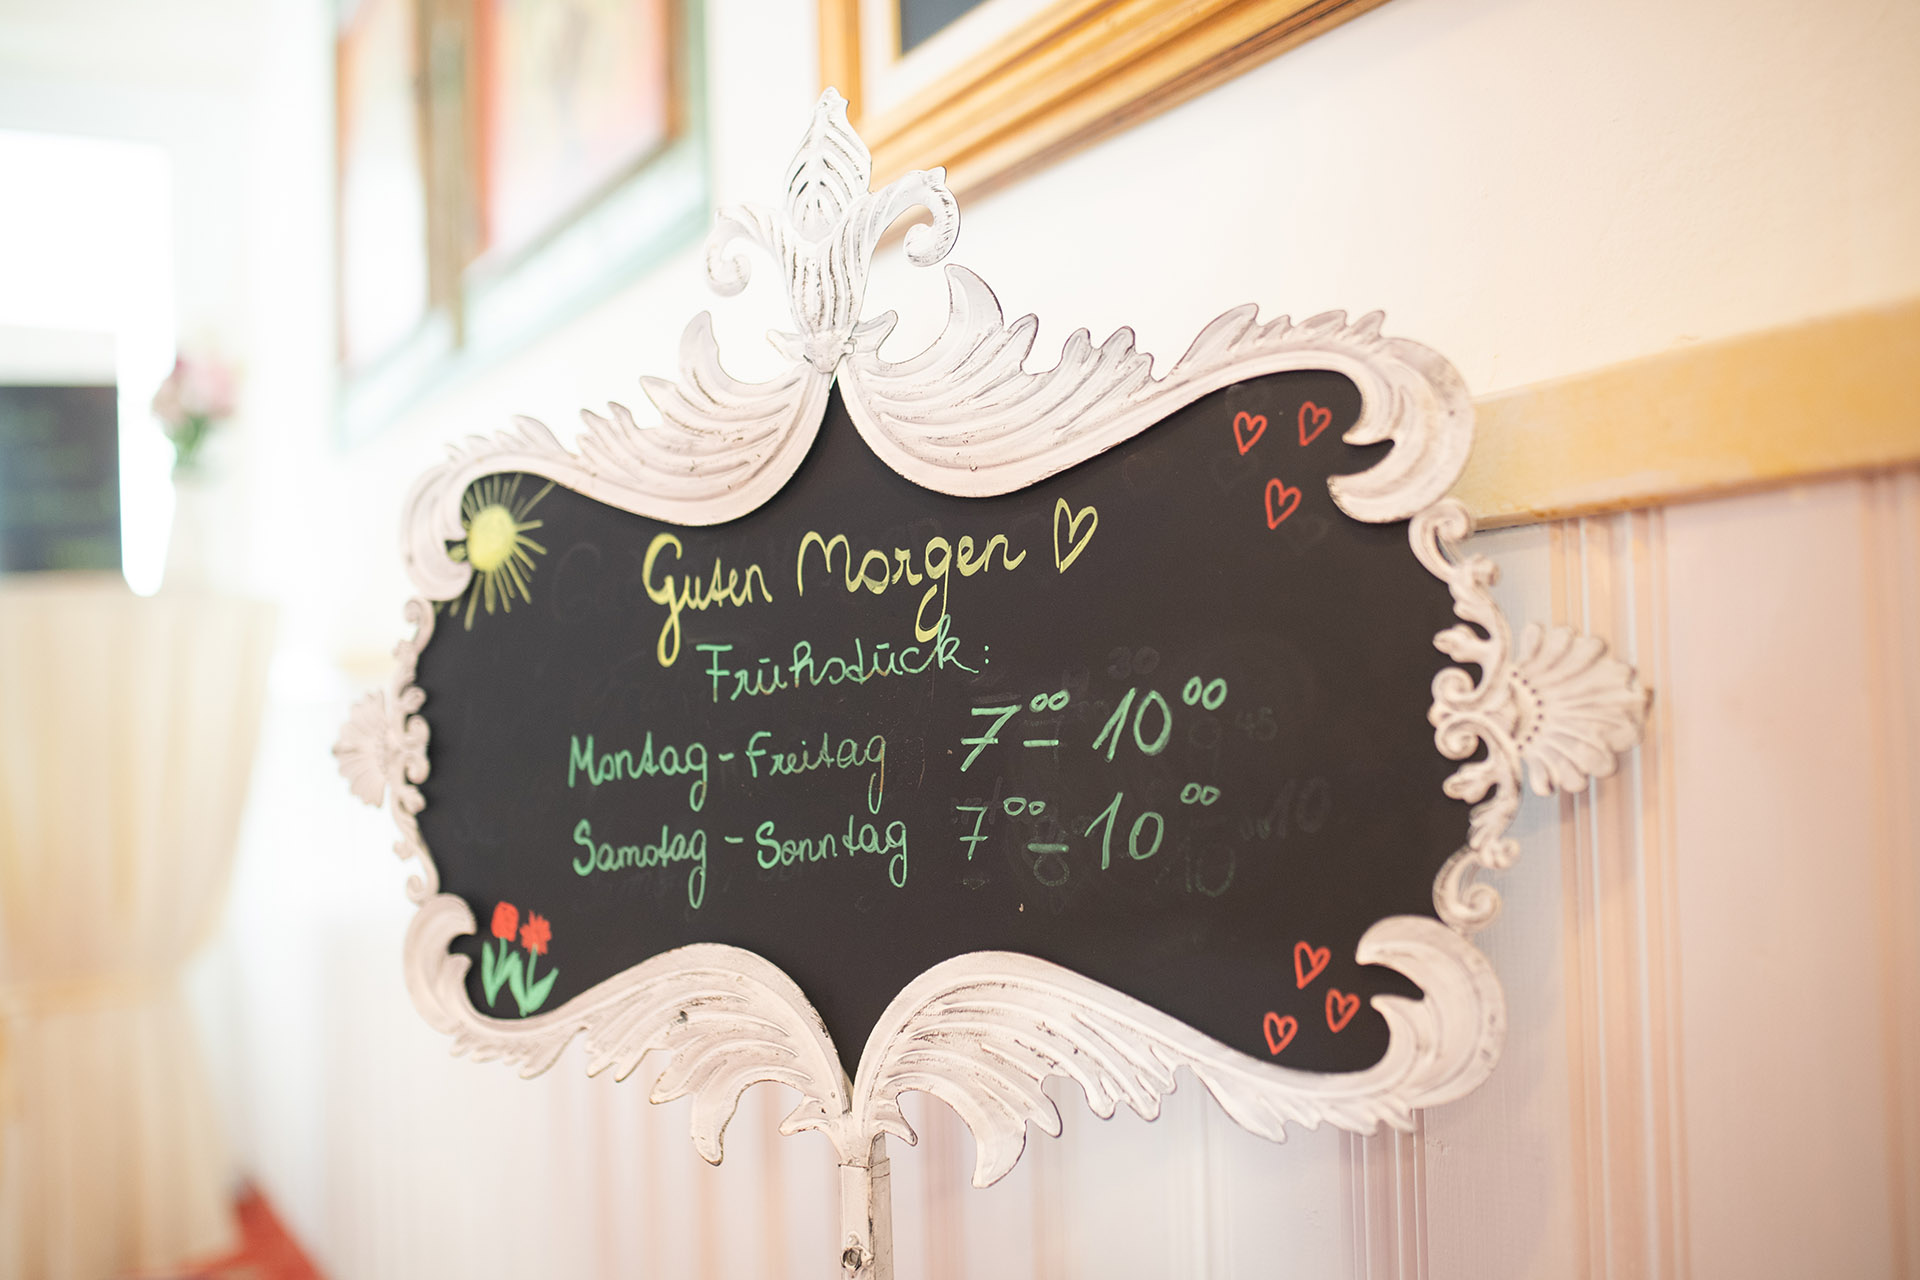 Guten Morgen
Frühstück:
Montag - Freitag 7⁰⁰ - 10⁰⁰
Samstag - Sonntag 7⁰⁰ - 10⁰⁰